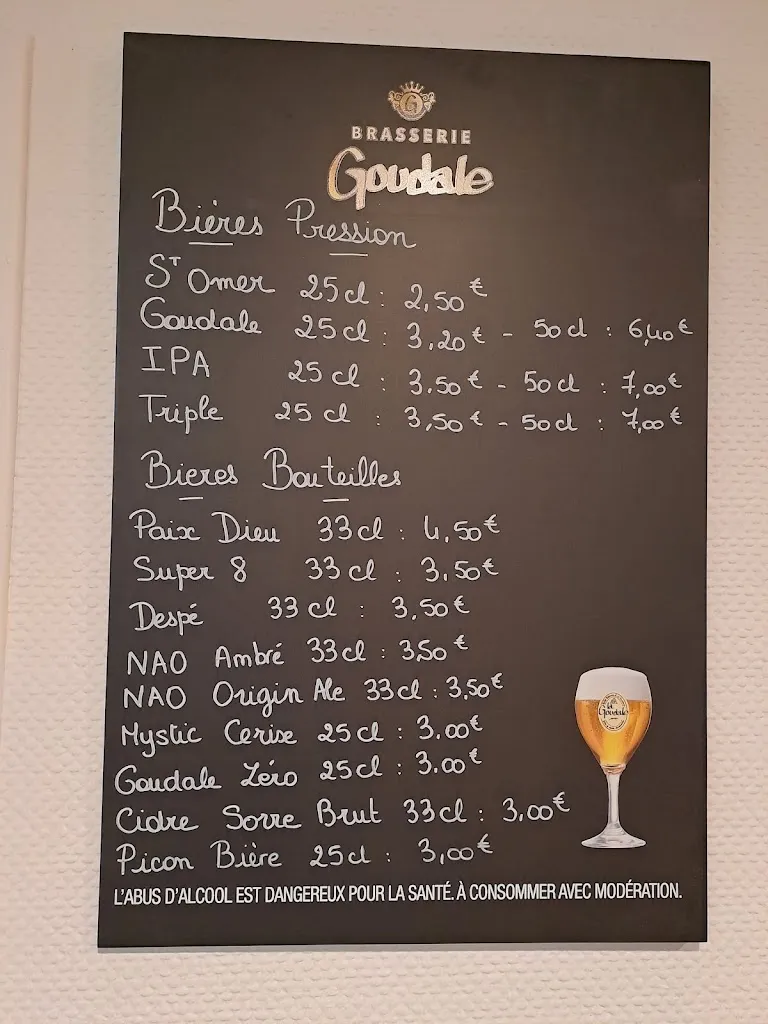 BRASSERIE
Goudale
Bières Pression
St Omer 25cl : 2,50€
Goudale 25cl : 3,20€ - 50cl : 6,40€
IPA 25cl : 3.50€ - 50cl : 7,00€
Triple 25cl : 3,50€ - 50cl : 7,00€
Bieres Bouteilles
Paix Dieu 33cl : 4,50€
Super 8 33cl : 3,50€
Despé 33cl : 3,50€
NAO Ambré 33cl : 3,50€
NAO Origin Ale 33cl : 3,50€
Mystic Cerise 25cl : 3.00€
Goudale Zéro 25cl : 3.00€
Cidre Sorre Brut 33cl : 3,00€
Picon Bière 25cl : 3,00€
la Goudale
L'ABUS D'ALCOOL EST DANGEREUX POUR LA SANTÉ. À CONSOMMER AVEC MODÉRATION.